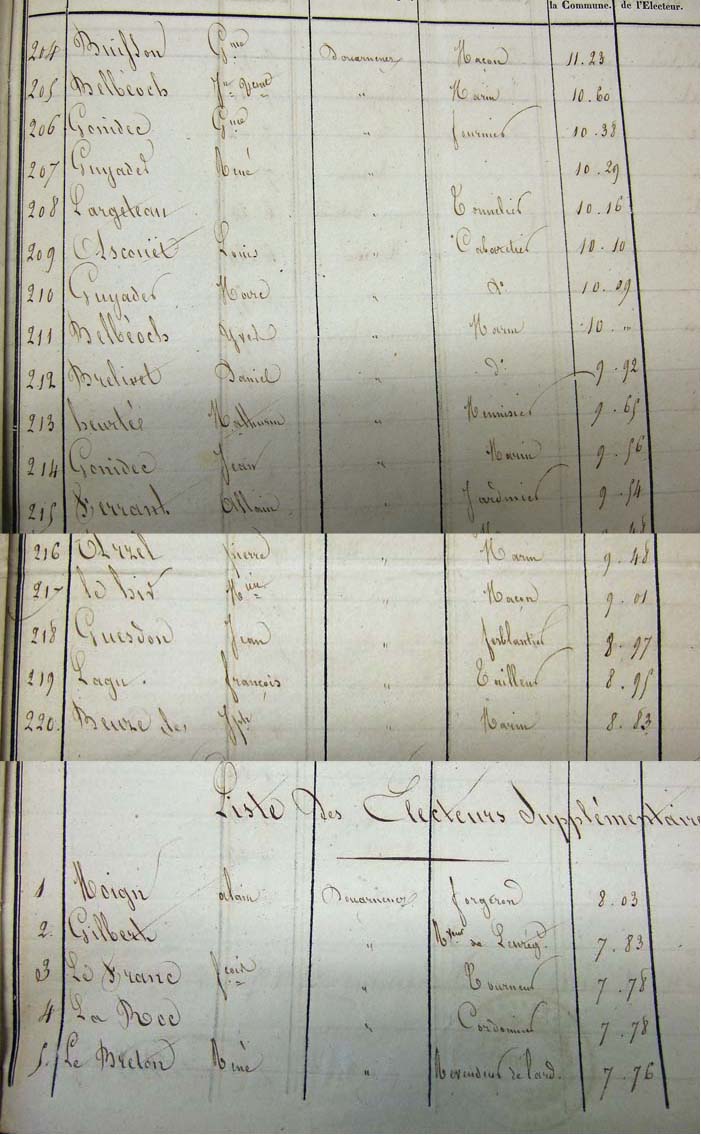 la Commune. de l'Electeur.
204 Buisson Gme Douarnenez Maçon 11.23
205 Belbéoch Jn " Marin 10.60
206 Gonidec Gme " fournier 10.38
207 Guyader René " 10.29
208 Largeteau " Tonnelier 10.16
209 Ascouët Louis " Cabaretier 10.10
210 Guyader Marc " do 10.09
211 Belbéoch Yves " Marin 10. "
212 Brelivet Daniel " do 9.92
213 heurtée Mathurin " Menuisier 9.65
214 Gonidec Jean " Marin 9.56
215 Ferrant Allain " Jardinier 9.54
216 Pierre " Marin 9.48
217 le hir " Maçon 9.01
218 Guesdon Jean " ferblantier 8.97
219 Lagu. françois " Tailleur 8.95
220. Beuze Jph " Marin 8.83
Liste des Electeurs Supplémentaire
1 Moign alain Douarnenez forgeron 8.03
2. Gilbert " de 7.83
3 Le Franc " Tourneur 7.78
4 La Roce " Cordonnier 7.78
5. Le Breton René " Revendeur de lard. 7.76